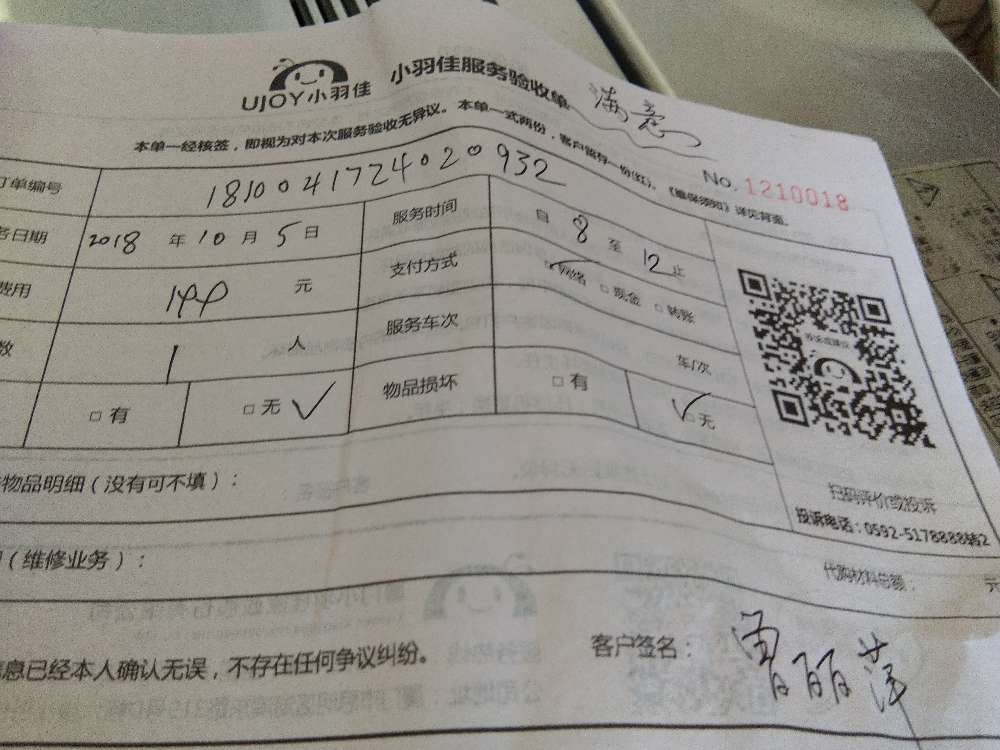 UJOY小羽佳 小羽佳服务验收单 满意
本单一经核签,即视为对本次服务验收无异议。本单一式两份,客户留存一份(红)。《维保须知》详见背面。
No. 1210018
订单编号 1810041724020932
务日期 2018 年 10 月 5 日 服务时间 自 8 至 12 止
费用 元 支付方式 网络 □ 现金 □ 转账
数 1 人 服务车次 车/次
□ 有 □ 无 ✓ 物品损坏 □ 有 ✓ □ 无
扫码评价或投诉
投诉电话:0592-5178888转2
物品明细(没有可不填):
(维修业务): 代购材料总额: 元
信息已经本人确认无误,不存在任何争议纠纷。 客户签名: 曾丽萍